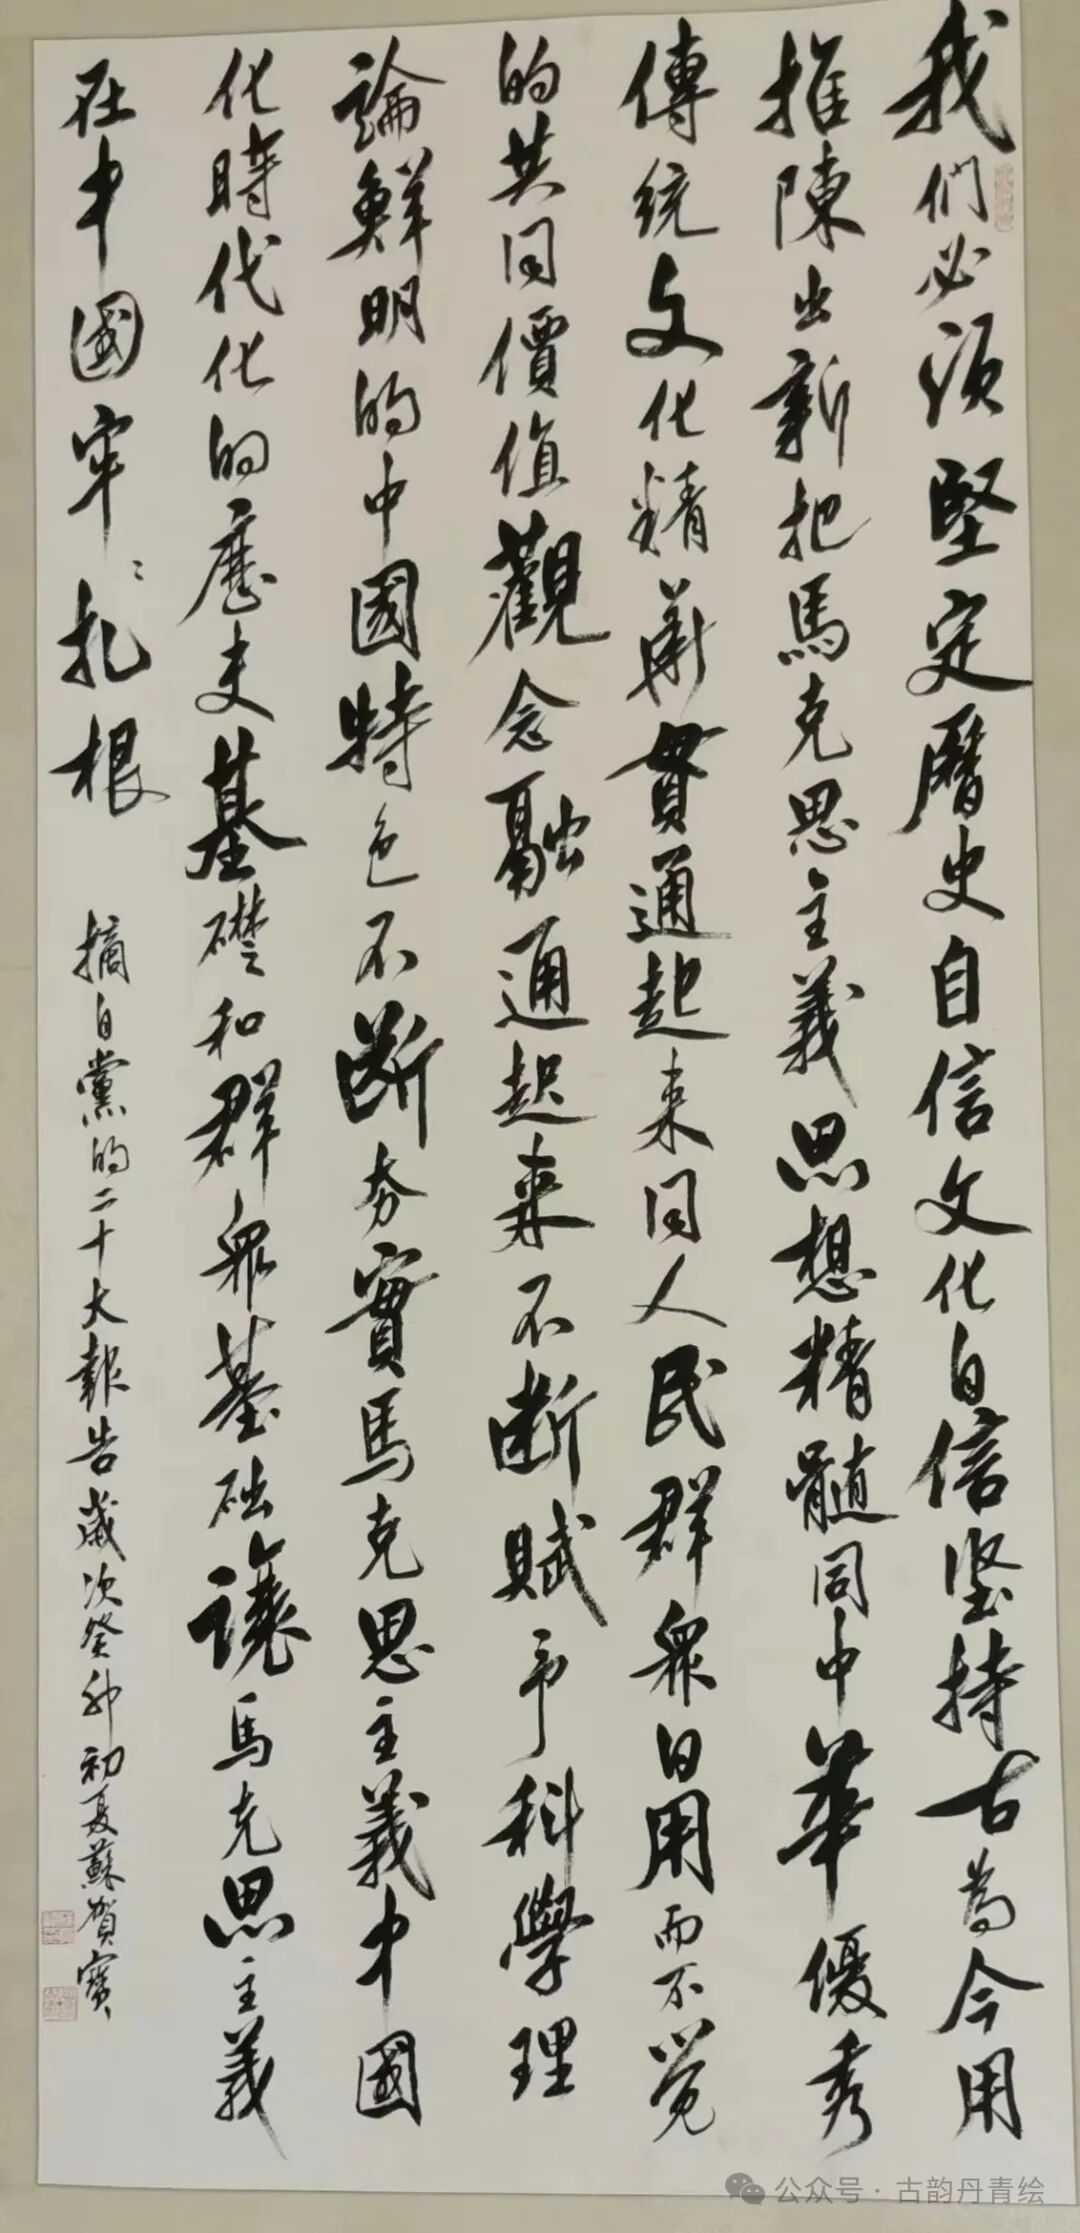 我們必須堅定曆史自信文化自信坚持古為今用
推陳出新把馬克思主義思想精髓同中華優秀
傳統文化精華貫通起来同人民群眾日用而不觉
的共同價值觀念融通起来不断賦予科學理
論鮮明的中國特色不断夯實馬克思主義中國
化時代化的歷史基礎和群眾基础讓馬克思主義
在中國牢〻扎根
摘自黨的二十大報告歲次癸卯初夏蘇賀寳
公众号·古韵丹青绘